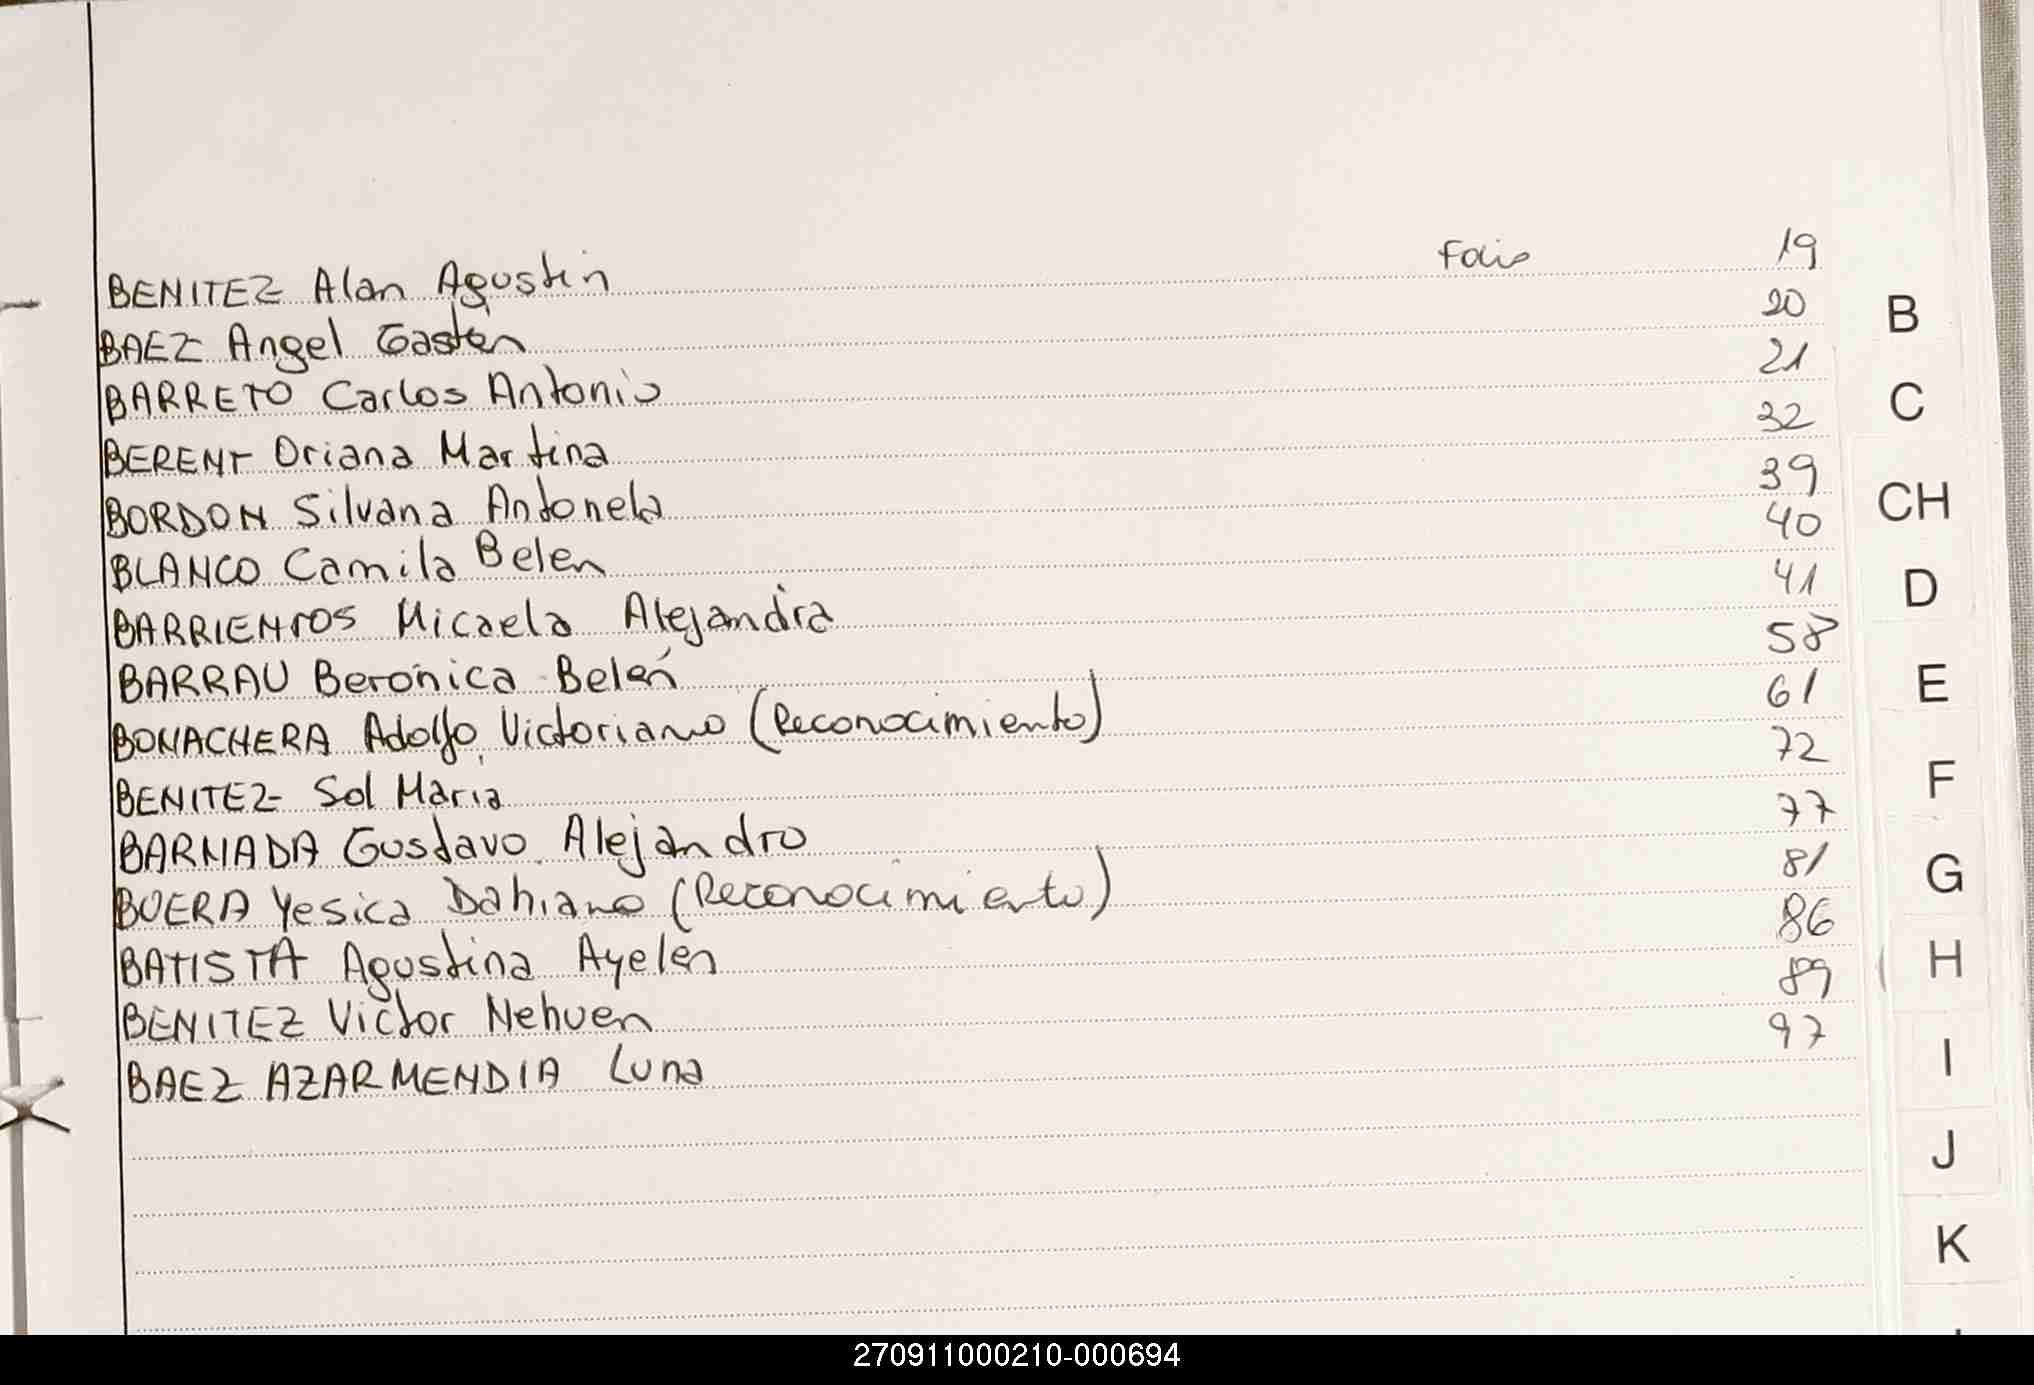 BENITEZ Alan Agustin Folio 19
BAEZ Angel Gastón 20
BARRETO Carlos Antonio 21
BERENT Oriana Martina 32
BORDON Silvana Antonela 39
BLANCO Camila Belen 40
BARRIENTOS Micaela Alejandra 41
BARRAU Berónica Belén 58
BONACHERA Adolfo Victoriano (Reconocimiento) 61
BENITEZ Sol Maria 72
BARNADA Gustavo Alejandro 77
BOERA Yesica Dahiana (Reconocimiento) 81
BATISTA Agustina Ayelen 86
BENITEZ Victor Nehuen 89
BAEZ AZARMENDIA Luna 97
B
C
CH
D
E
F
G
H
I
J
K
270911000210-000694